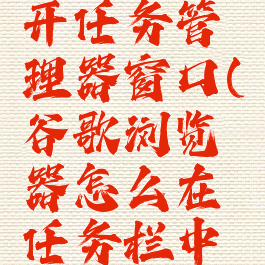 开任务管
理器窗口(
谷歌浏览
器怎么在
任务栏中